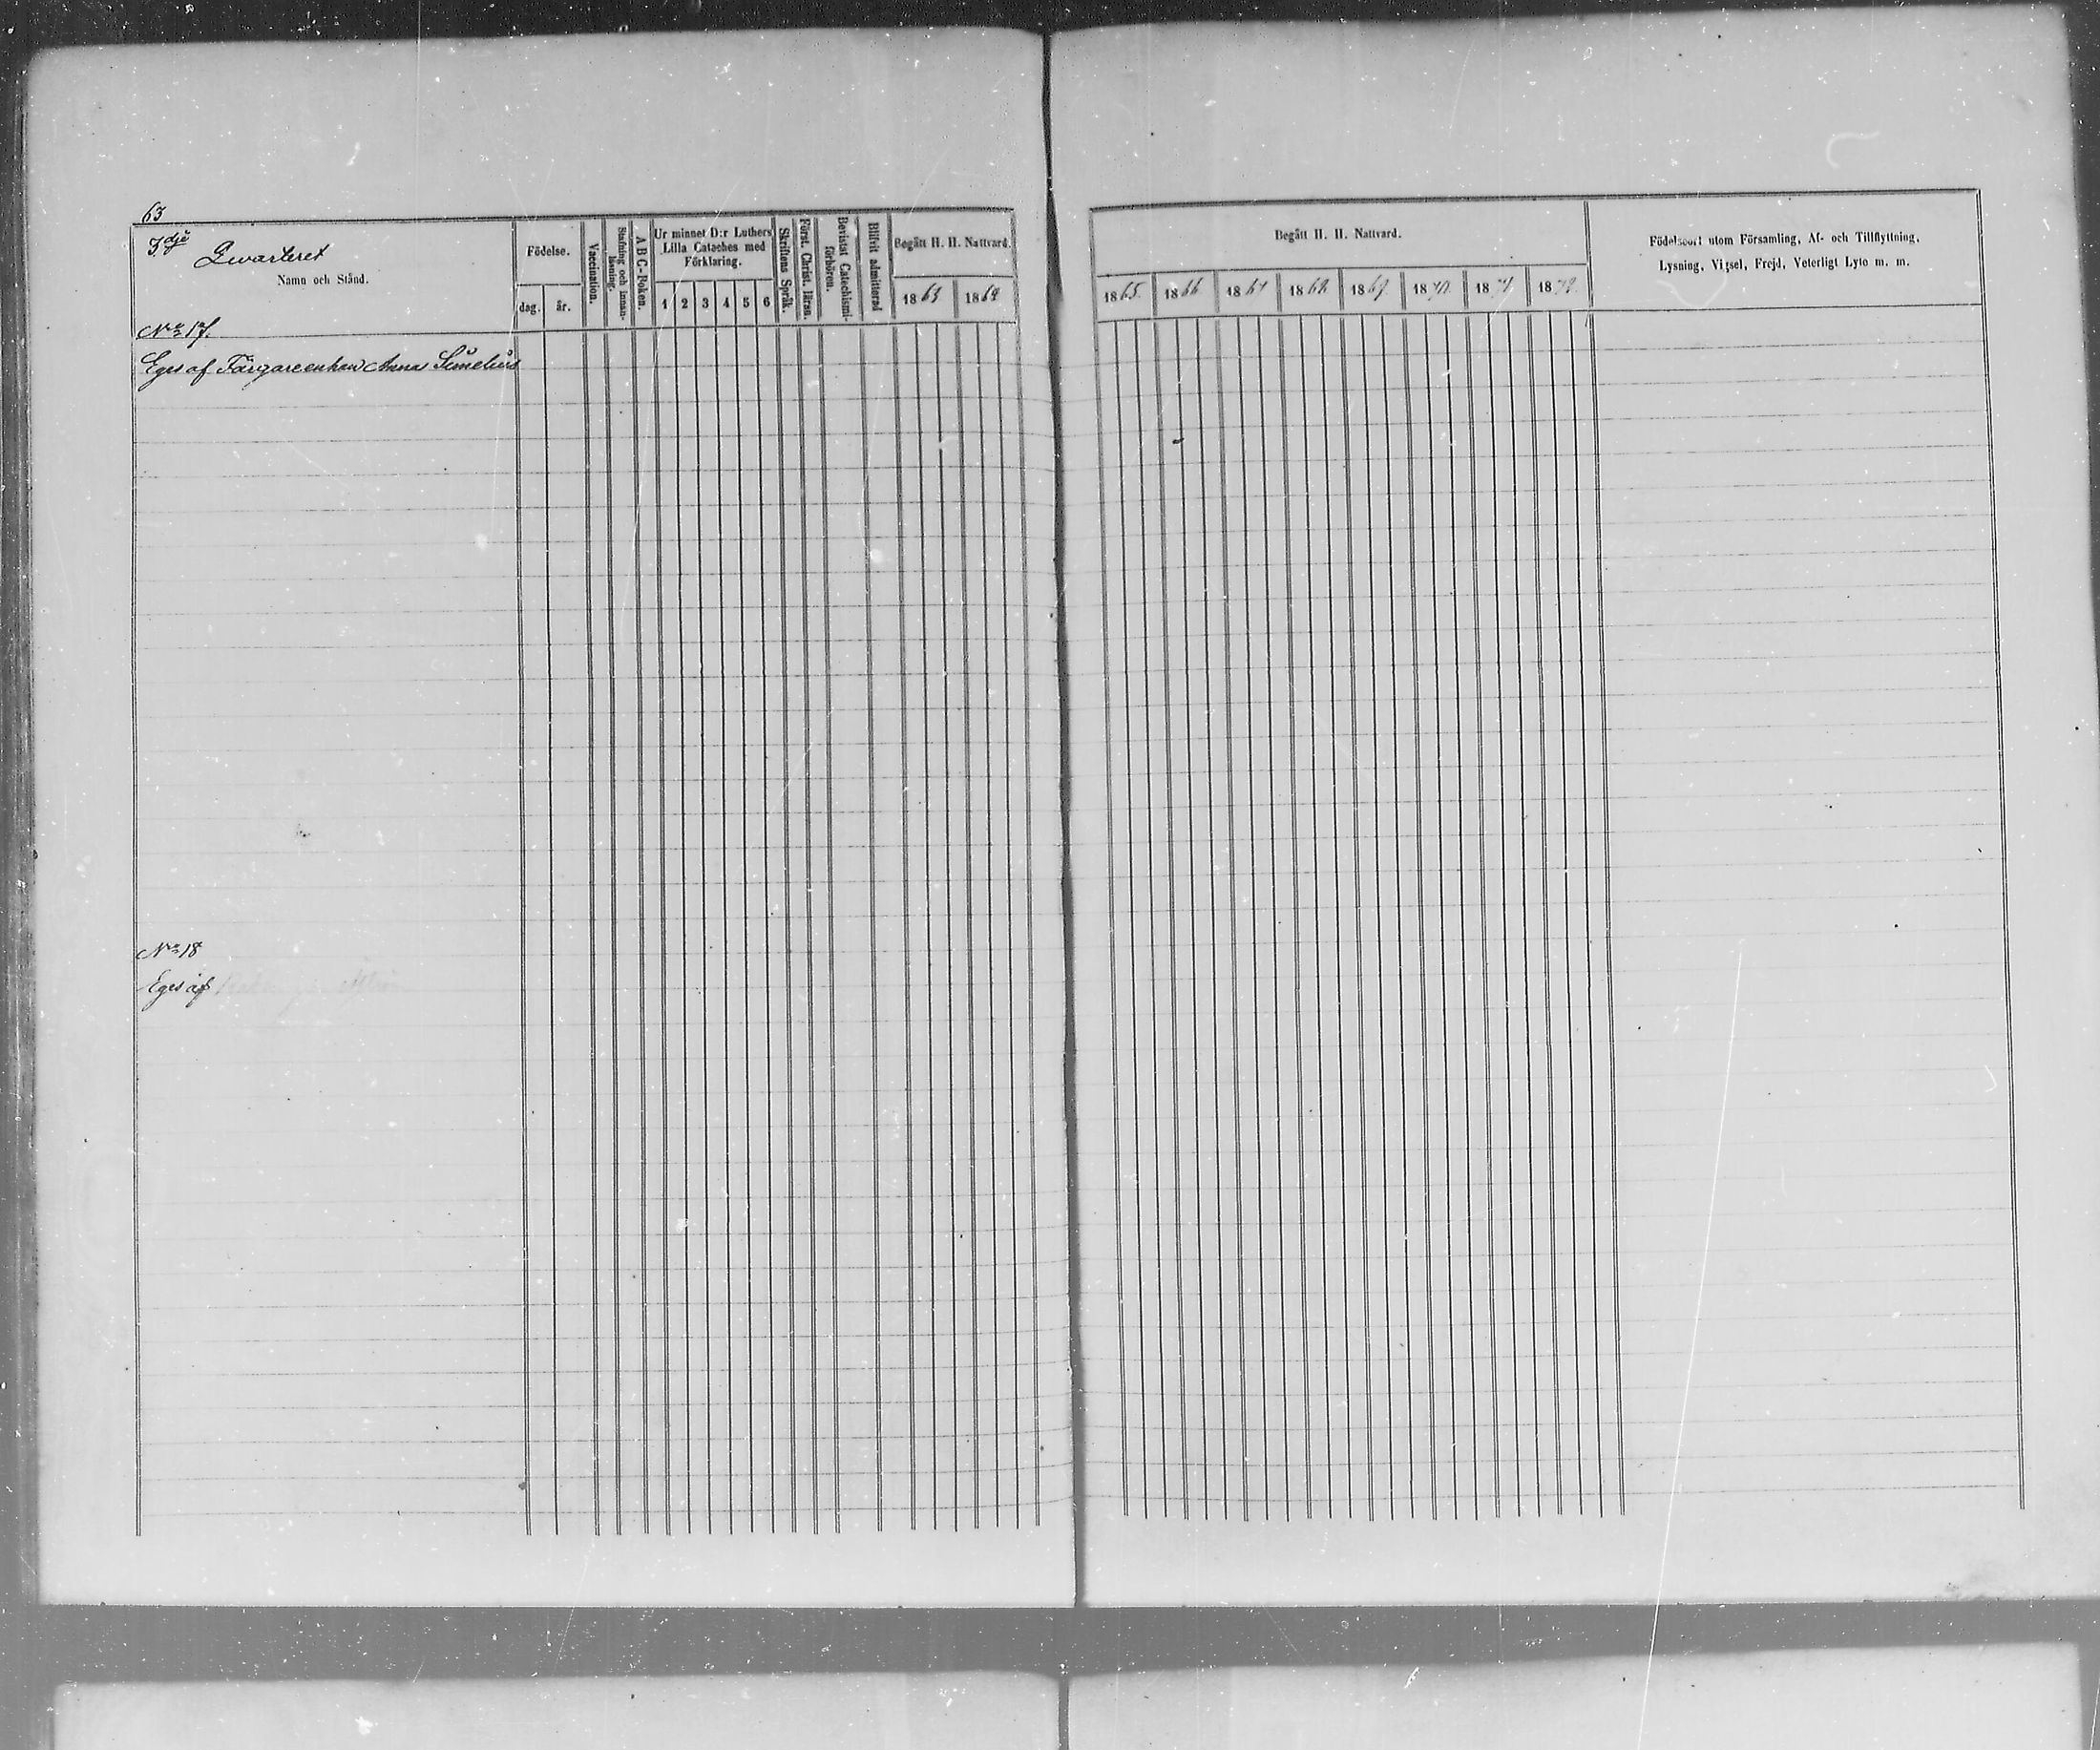 63
3dje Qwarteret
Namn och Stånd.
Födelse.
dag. år.
Vaccination.
Stafning och innanläsning.
A B C-Boken.
Ur minnet D:r Luthers
Lilla Cateches med
Förklaring.
1 2 3 4 5 6
Skriftens Språk.
Först. Christ. läran.
Bevistat Catechismi-
förhören.
Blifvit admitterad
Begått H. H. Nattvard.
1863 1864
Begått H. H. Nattvard.
1865. 1866 1867 1868. 1869. 1870. 1871 1872.
Födelseort utom Församling, Af- och Tillflyttning,
Lysning, Vigsel, Frejd, Veterligt Lyte m. m.
No 17.
Eges af Färgareenkan Anna Simelius
No 18
Eges af